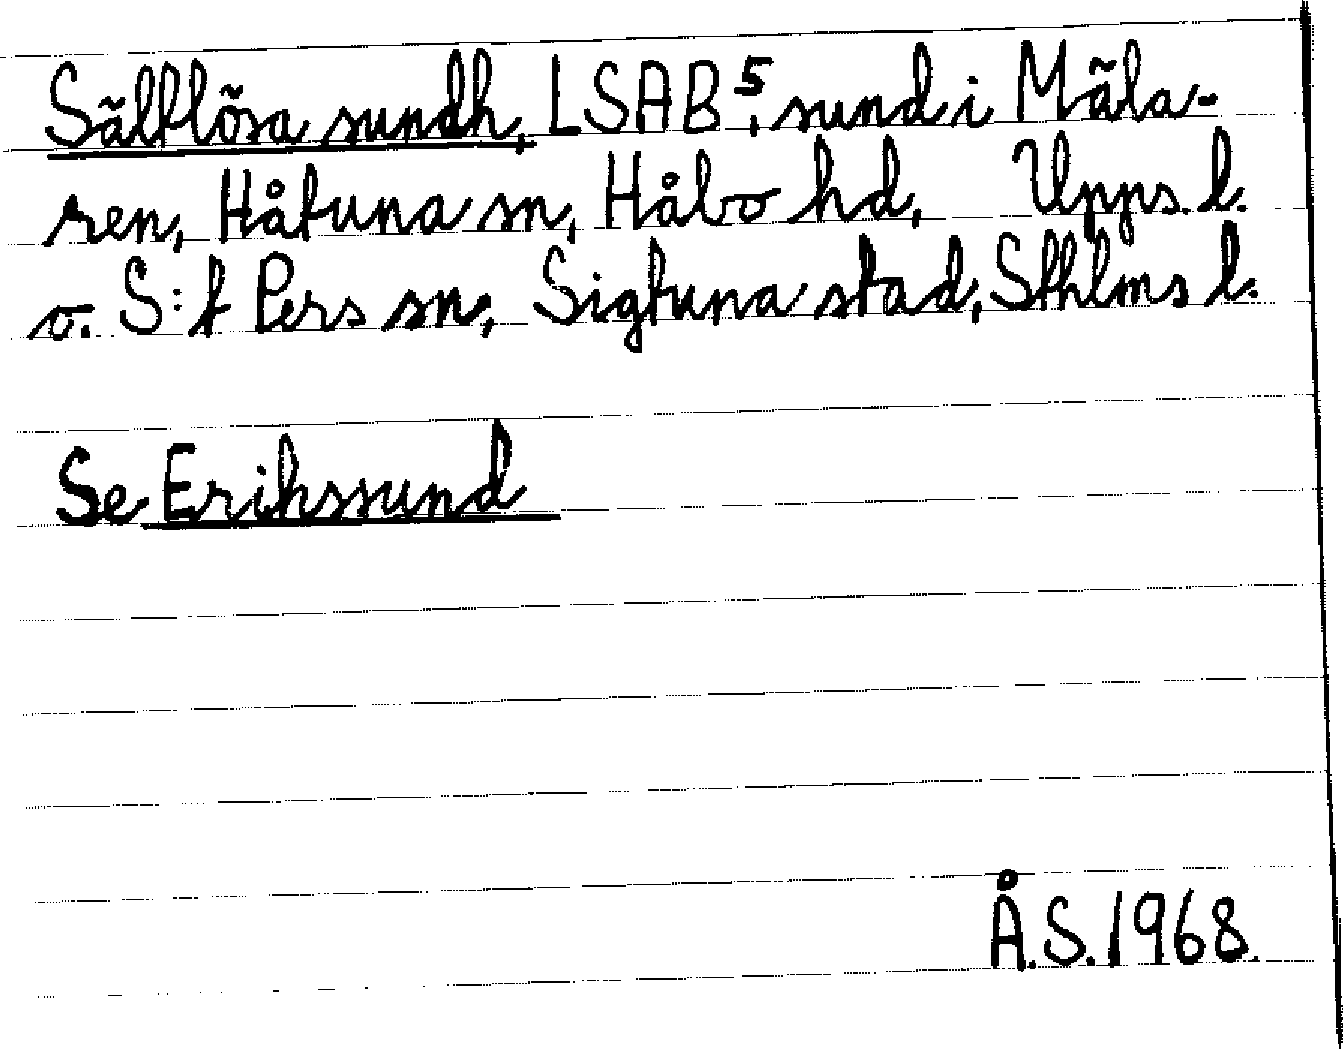 Sältlösa sundh, LSAB⁵, sund i Mäla-
ren, Håtuna sn, Håbo hd, Upps. l.
o. S:t Pers sn, Sigtuna stad, Sthlms l.
Se Erikssund
Å.S. 1968.